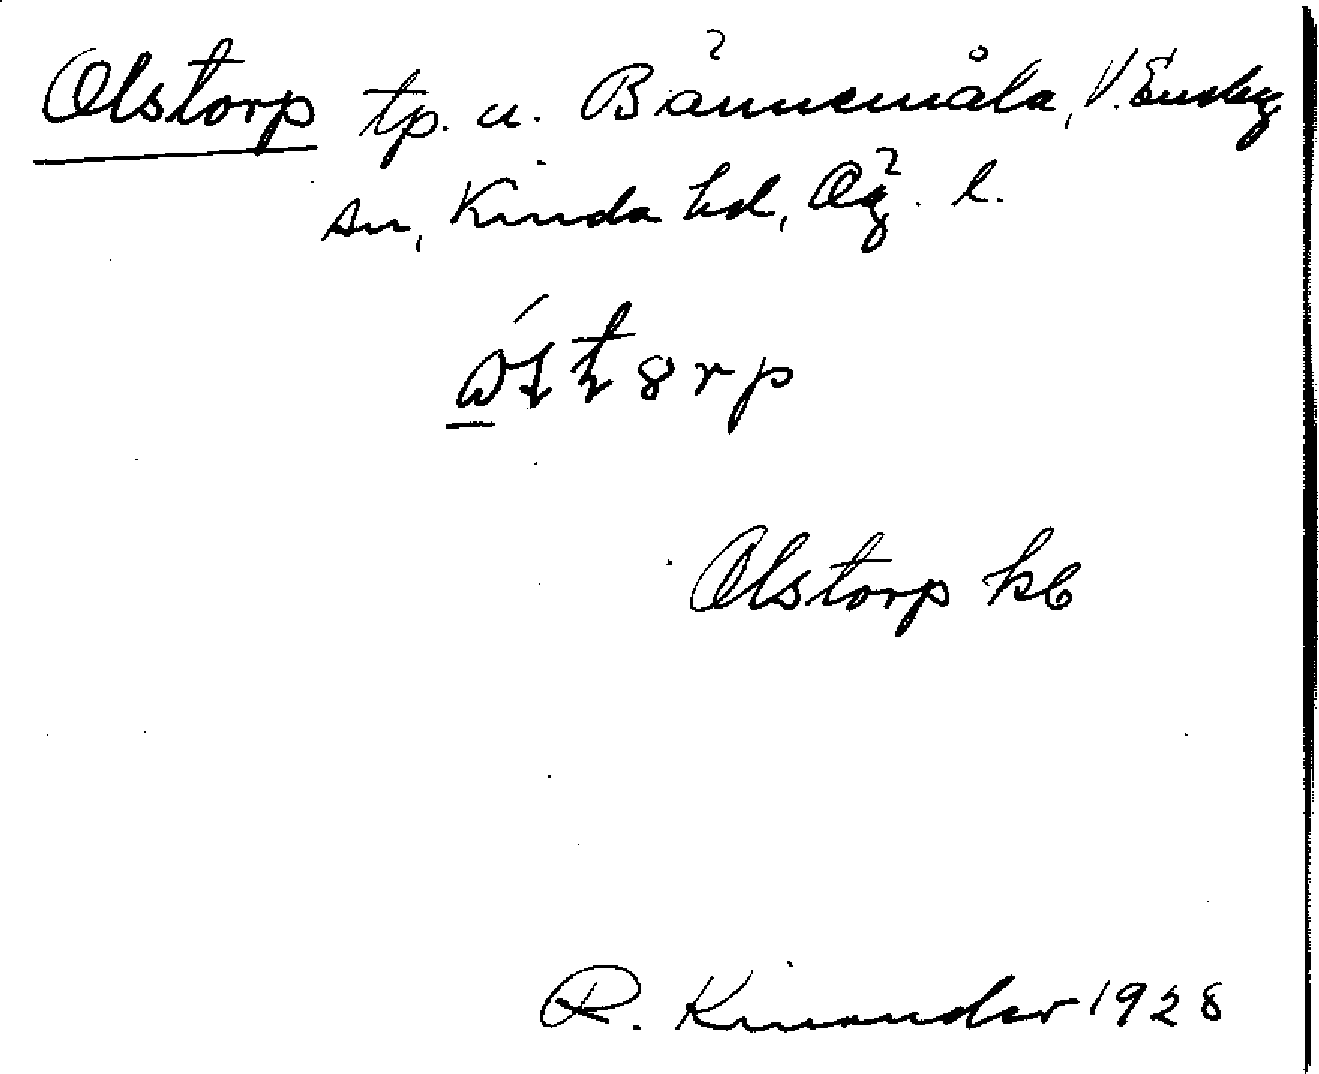 Olstorp tp. u. Bännemåla, V. Eneby
sn, Kinda hd, Ög. l.
Olstorp kb
R. Kinander 1928